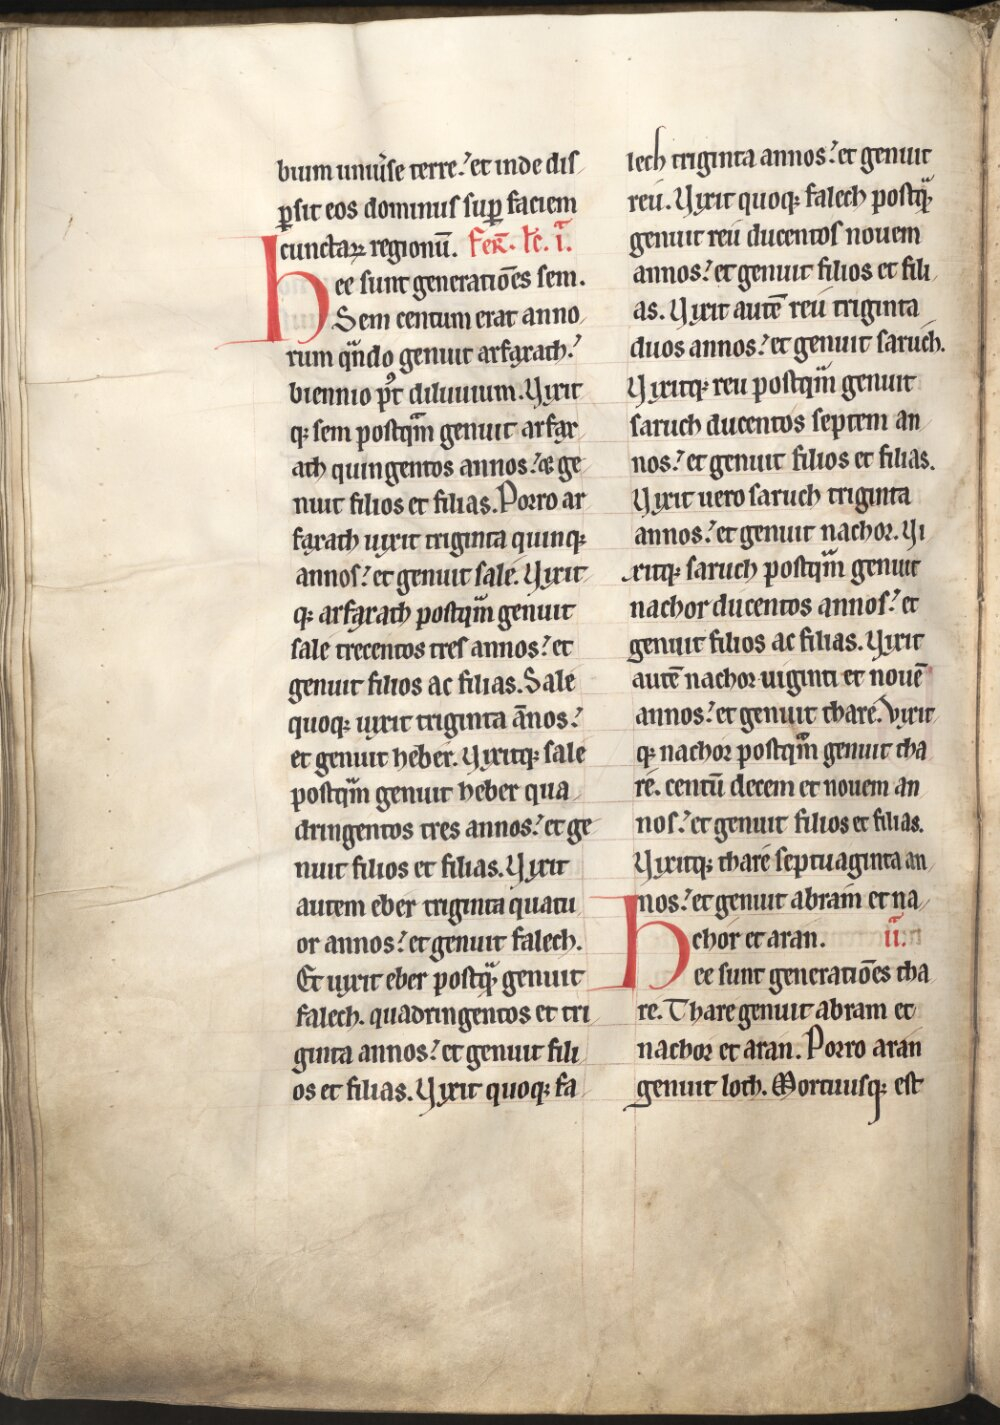 bium uniūse terre. et inde dis
ꝑsit eos dominus suꝑ faciem
cunctaꝝ regionū. Fer̄. lc̄. i.
hee sunt generatiōes sem.
Sem centum erat anno
rum qn̄do genuit arfaxath.
biennio pꝰt diluuium. Vixit
qꝫ sem postqm̄ genuit arfax
ath quingentos annos. & ge
nuit filios et filias. Porro ar
faxath uixit triginta quinqꝫ
annos. et genuit sale. Vixit
qꝫ arfaxath postqm̄ genuit
sale trecentos tres annos. et
genuit filios ac filias. Sale
quoqꝫ uixit triginta ānos.
et genuit heber. Vixitqꝫ sale
postqm̄ genuit heber qua
dringentos tres annos. et ge
nuit filios et filias. Vixit
autem eber triginta quatu
or annos. et genuit falech.
Et uixit eber postq̄ genuit
falech. quadringentos et tri
ginta annos. et genuit fili
os et filias. Vixit quoqꝫ fa
lech triginta annos. et genuit
reu. Vixit quoqꝫ falech postq̄
genuit reu ducentos nouem
annos. et genuit filios et fili
as. Vixit autē reu triginta
duos annos. et genuit saruch.
Vixitqꝫ reu postqm̄ genuit
saruch ducentos septem an
nos. et genuit filios et filias.
Vixit uero saruch triginta
annos. et genuit nachor. Vi
xitqꝫ saruch postqm̄ genuit
nachor ducentos annos. et
genuit filios ac filias. Vixit
autē nachor uiginti et nouē
annos. et genuit thare. Vixit
qꝫ nachor postqm̄ genuit tha
re. centū decem et nouem an
nos. et genuit filios et filias.
Vixitqꝫ thare septuaginta an
nos. et genuit abram et na
chor et aran. ii.
hee sunt generatiōes tha
re. Thare genuit abram et
nachor et aran. Porro aran
genuit loth. Mortuusqꝫ est